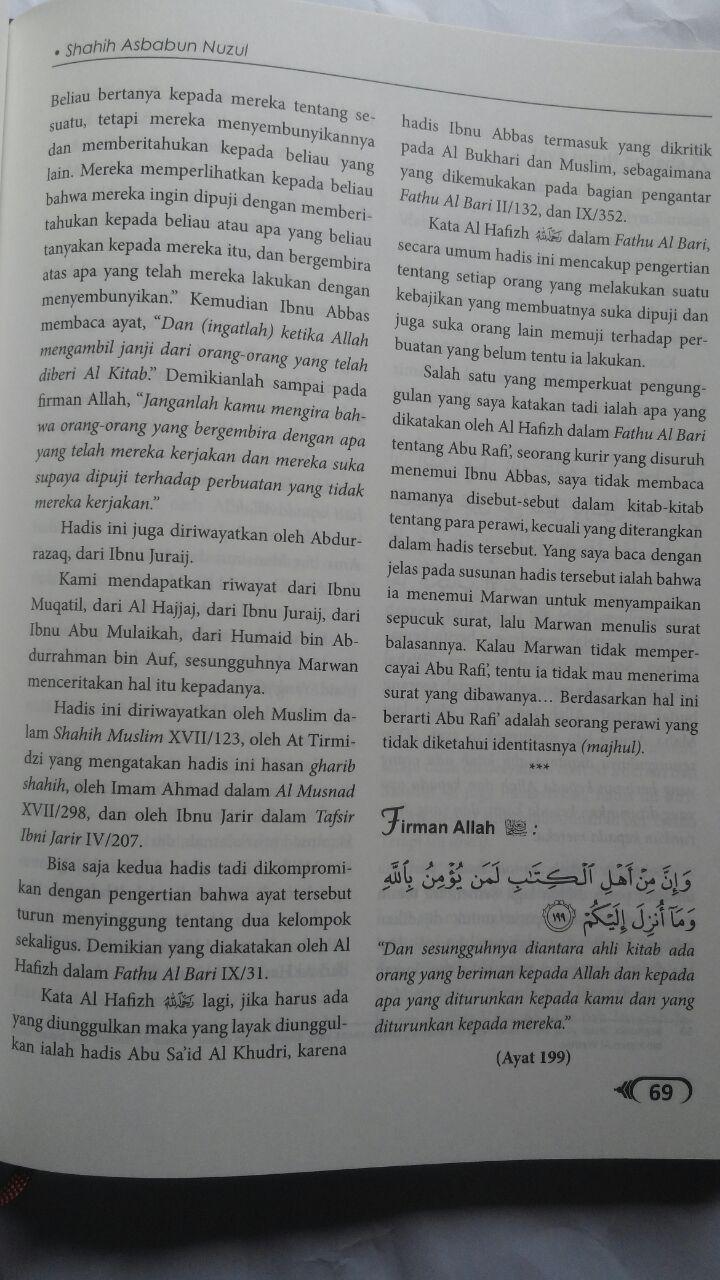 • Shahih Asbabun Nuzul
Beliau bertanya kepada mereka tentang se-
suatu, tetapi mereka menyembunyikannya
dan memberitahukan kepada beliau yang
lain. Mereka memperlihatkan kepada beliau
bahwa mereka ingin dipuji dengan memberi-
tahukan kepada beliau atau apa yang beliau
tanyakan kepada mereka itu, dan bergembira
atas apa yang telah mereka lakukan dengan
menyembunyikan.” Kemudian Ibnu Abbas
membaca ayat, “Dan (ingatlah) ketika Allah
mengambil janji dari orang-orang yang telah
diberi Al Kitab.” Demikianlah sampai pada
firman Allah, “Janganlah kamu mengira bah-
wa orang-orang yang bergembira dengan apa
yang telah mereka kerjakan dan mereka suka
supaya dipuji terhadap perbuatan yang tidak
mereka kerjakan.”
Hadis ini juga diriwayatkan oleh Abdur-
razaq, dari Ibnu Juraij.
Kami mendapatkan riwayat dari Ibnu
Muqatil, dari Al Hajjaj, dari Ibnu Juraij, dari
Ibnu Abu Mulaikah, dari Humaid bin Ab-
durrahman bin Auf, sesungguhnya Marwan
menceritakan hal itu kepadanya.
Hadis ini diriwayatkan oleh Muslim da-
lam Shahih Muslim XVII/123, oleh At Tirmi-
dzi yang mengatakan hadis ini hasan gharib
shahih, oleh Imam Ahmad dalam Al Musnad
XVII/298, dan oleh Ibnu Jarir dalam Tafsir
Ibni Jarir IV/207.
Bisa saja kedua hadis tadi dikompromi-
kan dengan pengertian bahwa ayat tersebut
turun menyinggung tentang dua kelompok
sekaligus. Demikian yang diakatakan oleh Al
Hafizh dalam Fathu Al Bari IX/31.
Kata Al Hafizh lagi, jika harus ada
yang diunggulkan maka yang layak diunggul-
kan ialah hadis Abu Sa’id Al Khudri, karena
hadis Ibnu Abbas termasuk yang dikritik
pada Al Bukhari dan Muslim, sebagaimana
yang dikemukakan pada bagian pengantar
Fathu Al Bari II/132, dan IX/352.
Kata Al Hafizh dalam Fathu Al Bari,
secara umum hadis ini mencakup pengertian
tentang setiap orang yang melakukan suatu
kebajikan yang membuatnya suka dipuji dan
juga suka orang lain memuji terhadap per-
buatan yang belum tentu ia lakukan.
Salah satu yang memperkuat pengung-
gulan yang saya katakan tadi ialah apa yang
dikatakan oleh Al Hafizh dalam Fathu Al Bari
tentang Abu Rafi’, seorang kurir yang disuruh
menemui Ibnu Abbas, saya tidak membaca
namanya disebut-sebut dalam kitab-kitab
tentang para perawi, kecuali yang diterangkan
dalam hadis tersebut. Yang saya baca dengan
jelas pada susunan hadis tersebut ialah bahwa
ia menemui Marwan untuk menyampaikan
sepucuk surat, lalu Marwan menulis surat
balasannya. Kalau Marwan tidak memper-
cayai Abu Rafi’, tentu ia tidak mau menerima
surat yang dibawanya... Berdasarkan hal ini
berarti Abu Rafi’ adalah seorang perawi yang
tidak diketahui identitasnya (majhul).
***
Firman Allah ﷻ :
وَإِنَّ مِنْ أَهْلِ ٱلْكِتَٰبِ لَمَن يُؤْمِنُ بِٱللَّهِ
وَمَآ أُنزِلَ إِلَيْكُمْ ١٩٩
“Dan sesungguhnya diantara ahli kitab ada
orang yang beriman kepada Allah dan kepada
apa yang diturunkan kepada kamu dan yang
diturunkan kepada mereka.”
(Ayat 199)
69